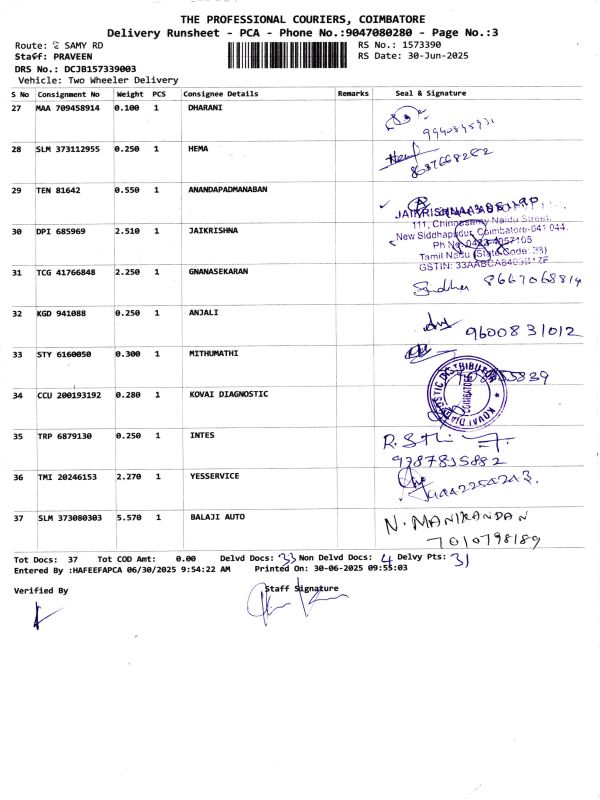 THE PROFESSIONAL COURIERS, COIMBATORE
Delivery Runsheet - PCA - Phone No.:9047080280 - Page No.:3
Route: SAMY RD
RS No.: 1573390
Staff: PRAVEEN
RS Date: 30-Jun-2025
DRS No.: DCJB157339003
Vehicle: Two Wheeler Delivery
S No Consignment No Weight PCS Consignee Details Remarks Seal & Signature
27 MAA 709458914 0.100 1 DHARANI
28 SLM 373112955 0.250 1 HEMA
8637668202
29 TEN 81642 0.550 1 ANANDAPADMANABAN
30 DPI 685969 2.510 1 JAIKRISHNA
111, Chinnasamy Naidu Street,
New Siddhapudur, Coimbatore-641 044.
Tamil Nadu (State Code: 33)
31 TCG 41766848 2.250 1 GNANASEKARAN
8667068814
32 KGD 941088 0.250 1 ANJALI
9600831012
33 STY 6160050 0.300 1 MITHUMATHI
34 CCU 200193192 0.280 1 KOVAI DIAGNOSTIC
KOVAI DIAGNOSTIC DISTRIBUTOR
COIMBATORE
35 TRP 6879130 0.250 1 INTES
9387815882
36 TMI 20246153 2.270 1 YESSERVICE
37 SLM 373080303 5.570 1 BALAJI AUTO
N. MANIKANDAN
7010798189
Tot Docs: 37 Tot COD Amt: 0.00 Delvd Docs: 33 Non Delvd Docs: 4 Delvy Pts: 31
Entered By :HAFEEFAPCA 06/30/2025 9:54:22 AM Printed On: 30-06-2025 09:55:03
Verified By
Staff Signature